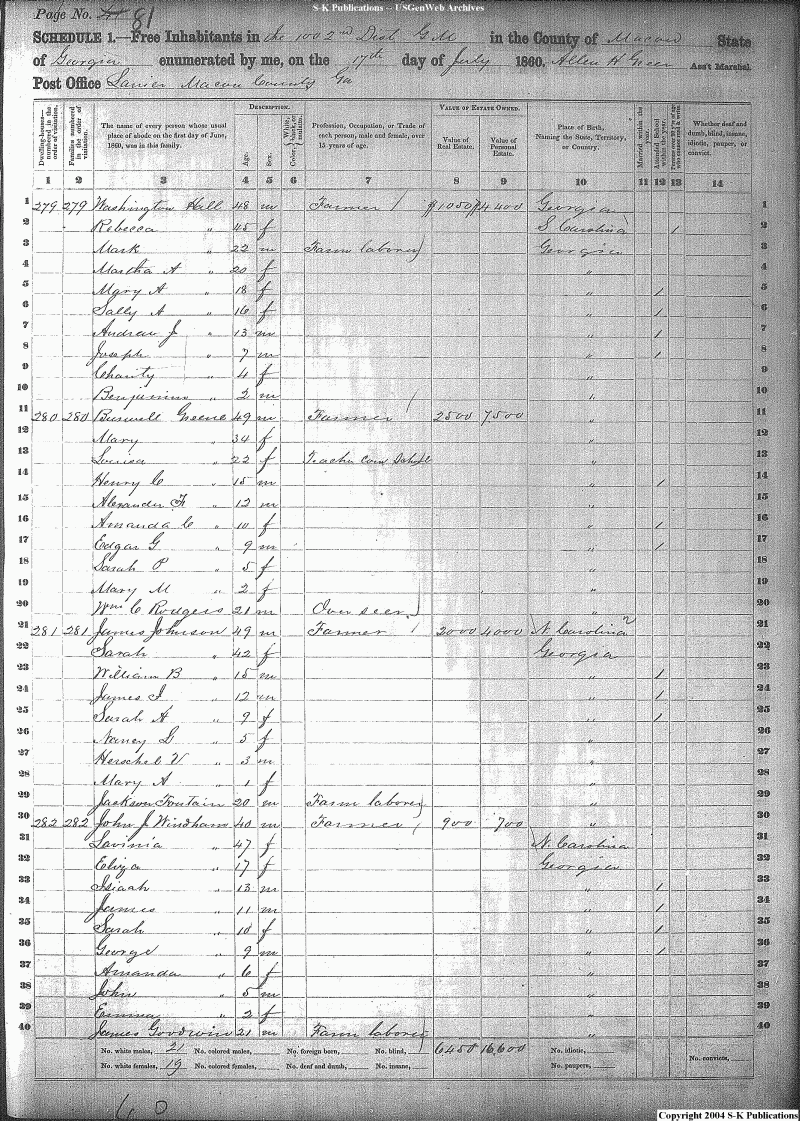 S-K Publications -- USGenWeb Archives
Page No. 81
SCHEDULE 1.—Free Inhabitants in the 1002nd Dist G M in the County of Macon State
of Georgia enumerated by me, on the 17th day of July 1860. Allen H Greer Ass't Marshal.
Post Office Lanier Macon County Ga
Dwelling-houses—numbered in the order of visitation.
Families numbered in the order of visitation.
The name of every person whose usual place of abode on the first day of June, 1860, was in this family.
DESCRIPTION.
Age.
Sex.
Color, White, black, or mulatto.
Profession, Occupation, or Trade of each person, male and female, over 15 years of age.
VALUE OF ESTATE OWNED.
Value of Real Estate.
Value of Personal Estate.
Place of Birth, Naming the State, Territory, or Country.
Married within the year.
Attended School within the year.
Whether deaf and dumb, blind, insane, idiotic, pauper, or convict.
1 2 3 4 5 6 7 8 9 10 11 12 13 14
1 279 279 Washington Hall 48 m Farmer $1050 $4400 Georgia 1
2 Rebecca " 45 f S Carolina / 2
3 Mark " 22 m Farm laborer Georgia 3
4 Martha A " 20 f " 4
5 Mary A " 18 f " / 5
6 Sally A " 16 f " / 6
7 Andrew J " 13 m " / 7
8 Joseph " 7 m " / 8
9 Charity " 4 f " 9
10 Benjamin " 2 m " 10
11 280 280 Burwell Greene 49 m Farmer 2500 7500 " 11
12 Mary " 34 f " 12
13 Louisa " 22 f Teacher Com School " 13
14 Henry C " 15 m " / 14
15 Alexander F " 12 m " 15
16 Amanda C " 10 f " / 16
17 Edgar G " 9 m " / 17
18 Sarah P " 5 f " 18
19 Mary M " 2 f " 19
20 Wm C Rodgers 21 m Over seer " 20
21 281 281 James Johnson 49 m Farmer 2000 4000 N. Carolina 21
22 Sarah " 42 f Georgia 22
23 William B " 15 m " / 23
24 James J " 12 m " / 24
25 Sarah A " 9 f " / 25
26 Nancy G " 5 f " 26
27 Herschel V " 3 m " 27
28 Mary A " 1 f " 28
29 Jackson Fountain 20 m Farm laborer " 29
30 282 282 John J Windham 40 m Farmer 900 700 " 30
31 Lavinia " 47 f N. Carolina 31
32 Eliza " 17 f Georgia 32
33 Isiaah " 13 m " / 33
34 James " 11 m " / 34
35 Sarah " 10 f " / 35
36 George " 9 m " / 36
37 Amanda " 6 f " 37
38 John " 5 m " 38
39 Emma " 2 f " 39
40 James Goodwin 21 m Farm laborer " 40
No. white males, 21 No. colored males, No. foreign born, No. blind, 6450 16,600 No. idiotic, No. convicts,
No. white females, 19 No. colored females, No. deaf and dumb, No. insane, No. paupers,
Copyright 2004 S-K Publications